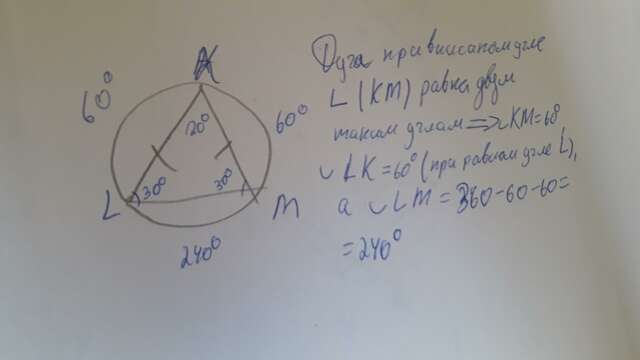 K
60°
60°
120°
30°
30°
L
M
240°
Дуга при вписаном угле
L (KM) равна двум
таким углам => ∪KM=60°
∪ LK = 60° (при равном угле L),
а ∪ LM = 360-60-60=
= 240°